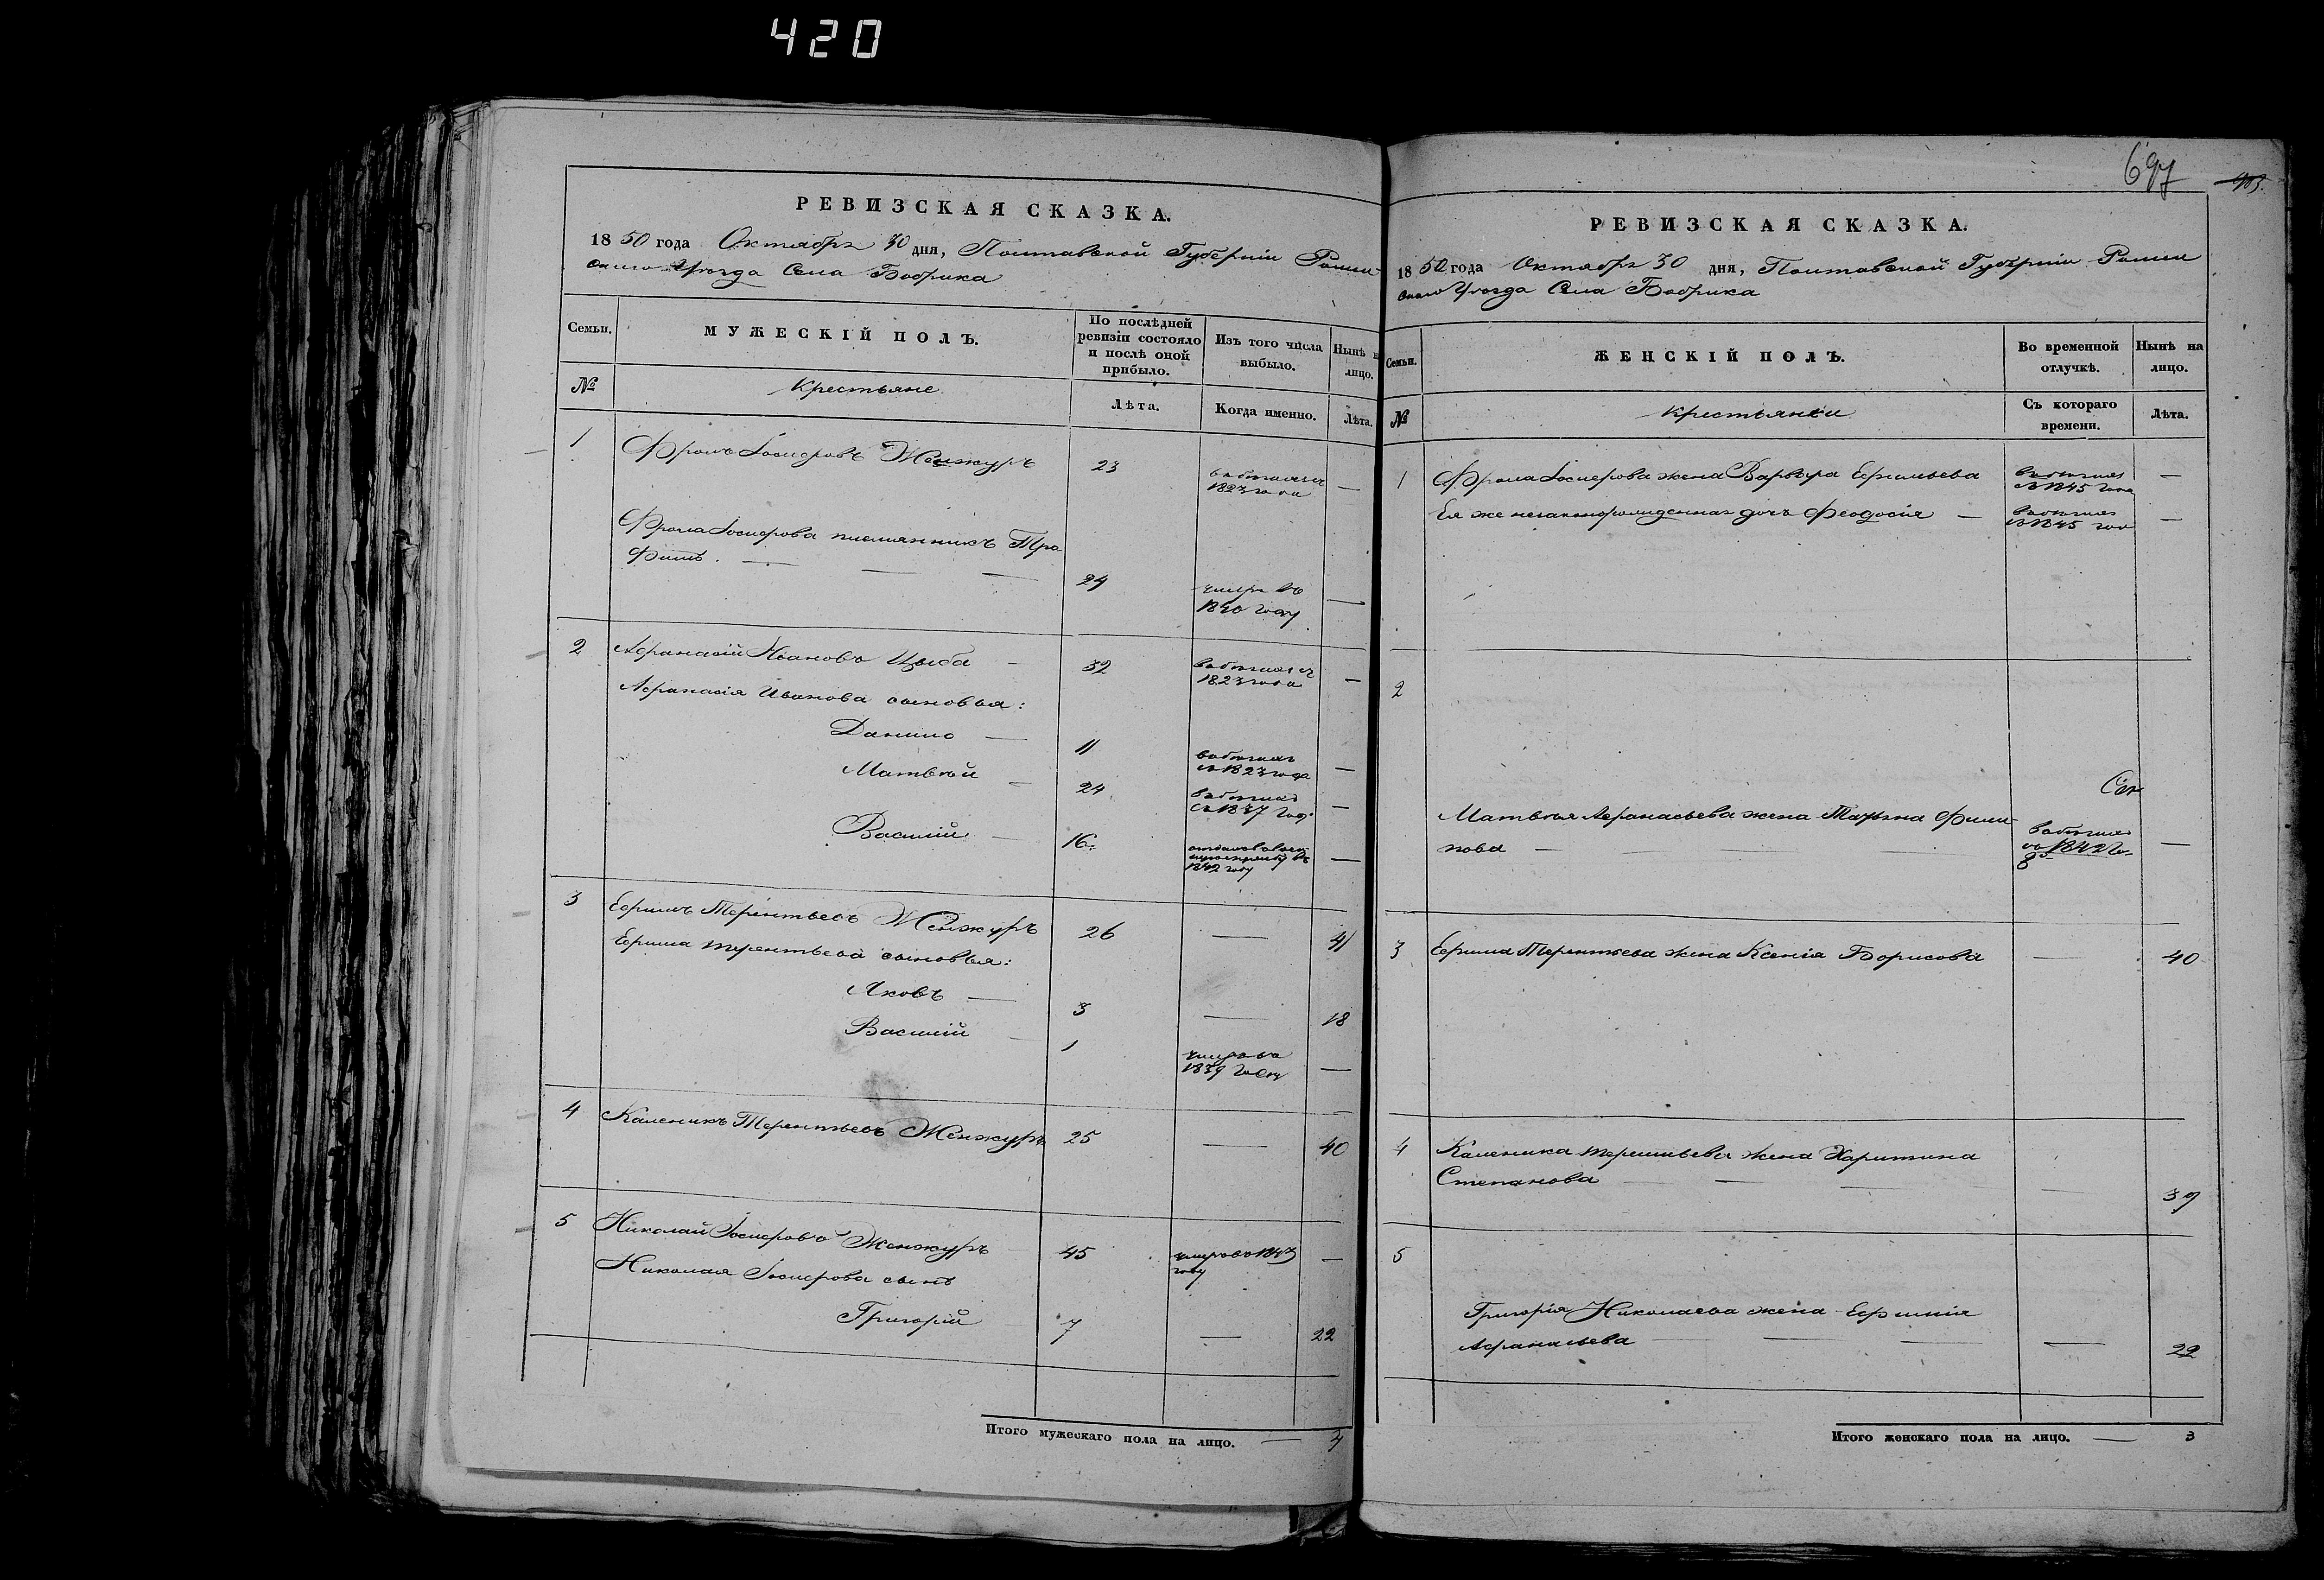 420
РЕВИЗСКАЯ СКАЗКА.
1850 года Октября 30 дня, Полтавской Губерніи Ромен-
скаго Уѣзда Села Бобрика
Семьи.
МУЖЕСКІЙ ПОЛЪ.
По послѣдней ревизіи состояло и послѣ оной прибыло.
Изъ того числа выбыло.
Нынѣ на лицо.
№
Крестьяне
Лѣта.
Когда именно.
Лѣта.
1 Фролъ Іосифовъ Женжуръ 23 въ бѣгахъ съ —
1823 года
Фрола Іосифова племянникъ Тро
фимъ. — — — 24 умеръ въ —
1840 году
2 Афанасій Ивановъ Цыба — 32 въ бѣгахъ съ —
1823 года
Афанасія Иванова сыновья:
Данило — 11 въ бѣгахъ —
съ 1823 года
Матвѣй — 24 въ бѣгахъ —
съ 1837 год.
Василій — 16 въ —
1842 году
3 Ефимъ Терентьевъ Женжуръ 26 — 41
Ефима Терентьева сыновья:
Яковъ — 3 — 18
Василій — 1 умеръ въ —
1839 году
4 Каленикъ Терентьевъ Женжуръ 25 — 40
5 Николай Іосифовъ Женжуръ 45 умеръ въ 1843 —
году
Николая Іосифова сынъ
Григорій 7 — 22
Итого мужескаго пола на лицо. — 4
697
РЕВИЗСКАЯ СКАЗКА.
1850 года Октября 30 дня, Полтавской Губерніи Ромен
скаго Уѣзда Села Бобрика
Семьи.
ЖЕНСКІЙ ПОЛЪ.
Во временной отлучкѣ.
Нынѣ на лицо.
№
Крестьянки
Съ котораго времени.
Лѣта.
1 Фрола Іосифова жена Варвара Ефимьева въ бѣгахъ —
съ 1845 года
Ея же незаконнорожденная дочь Феодосія — въ бѣгахъ —
съ 1845 год
2
Матвѣя Афанасьева жена Татьяна Фили-
пова — — — въ бѣгахъ —
съ 1842 го
3 Ефима Терентьева жена Ксенія Борисова — 40
4 Каленика Терентьева жена Харитина
Степанова — — — — 39
5
Григорія Николаева жена Ефимія
Афанасьева — — — — 22
Итого женскаго пола на лицо. — 3